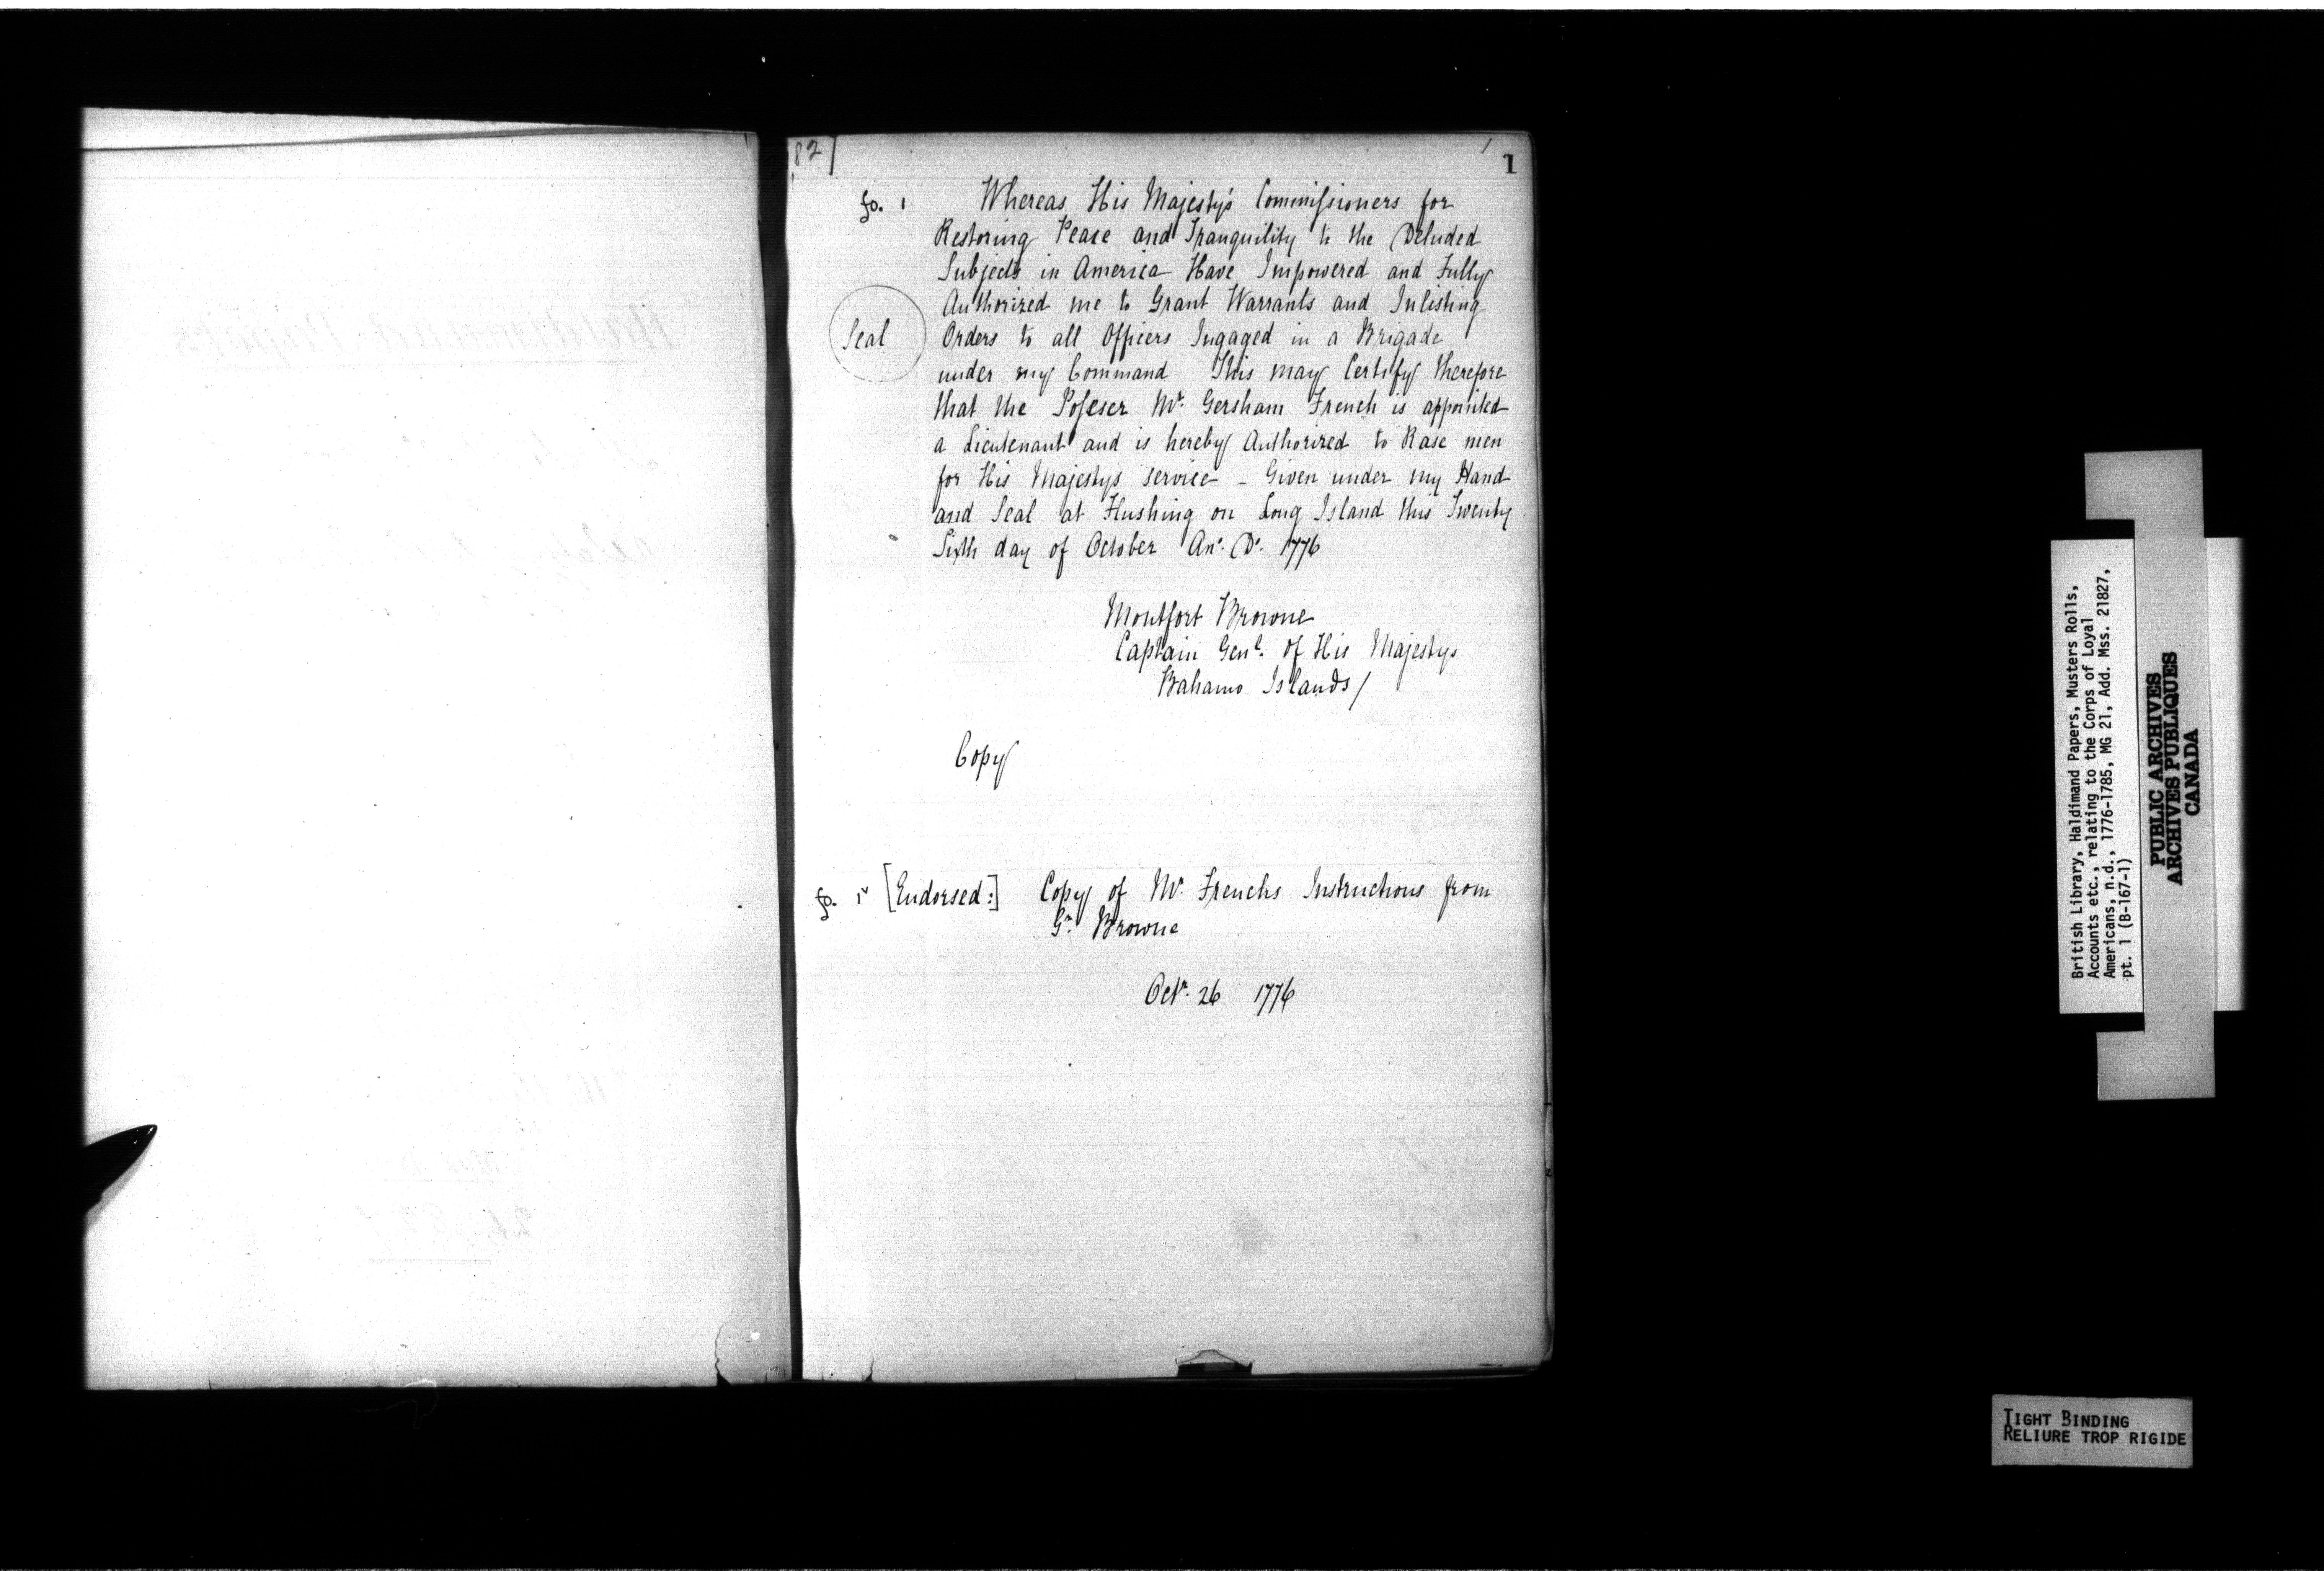 82
1
1
fo. 1
Whereas His Majesty's Commissioners for
Restoring Peace and Tranquility to the Deluded
Subjects in America Have Impowered and Fully
Authorized me to Grant Warrants and Inlisting
Orders to all Officers Ingaged in a Brigade
under my Command This may Certify therefore
that the Poseser Mr. Gersham French is appointed
a Lieutenant and is hereby Authorized to Rase men
for His Majestys service - Given under my Hand
and Seal at Flushing on Long Island this Twenty
Sixth day of October Ano. Do. 1776
Seal
Montfort Browne
Captain Genl. of His Majestys
Bahamo Islands/
Copy
fo. 1v [Endorsed:] Copy of Mr. Frenchs Instructions from
Gr. Browne
Octr. 26 1776
British Library, Haldimand Papers, Musters Rolls,
Accounts etc., relating to the Corps of Loyal
Americans, n.d., 1776-1785, MG 21, Add. Mss. 21827,
pt. 1 (B-167-1)
PUBLIC ARCHIVES
ARCHIVES PUBLIQUES
CANADA
TIGHT BINDING
RELIURE TROP RIGIDE